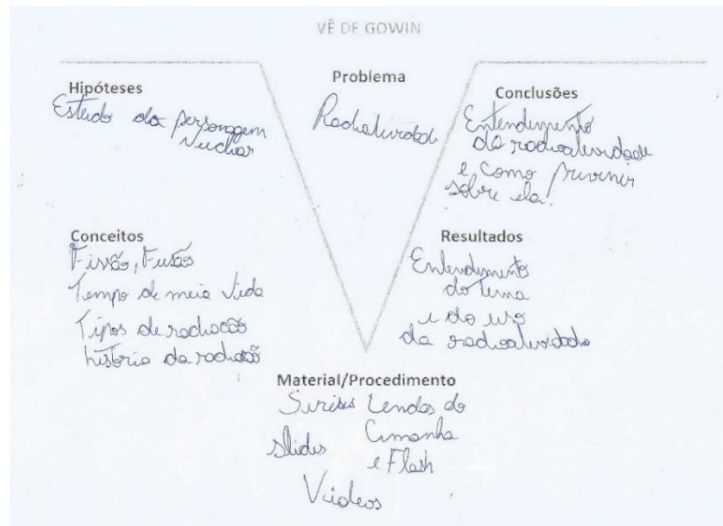 VÊ DE GOWIN
Hipóteses
Estudo da personagem
Nuclear
Problema
Radiatividade
Conclusões
Entendimento
da radioatividade
e como previnir
sobre ela!
Conceitos
Fissão, Fusão
Tempo de meia vida
Tipos de radiação
história da radiação
Resultados
Entendimento
do tema
e do uso
da radioatividade
Material/Procedimento
Series Lendas do
slides Amanha
e Flash
Videos